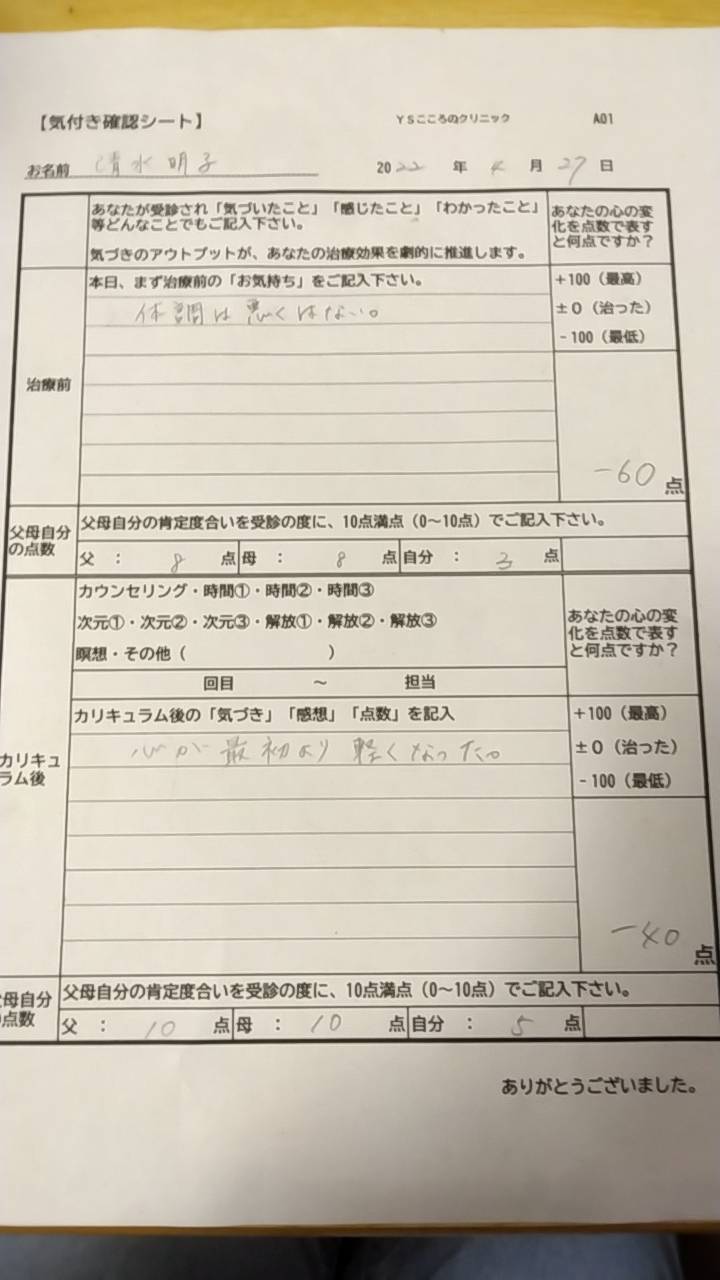 【気付き確認シート】 YSこころのクリニック A01
お名前 清水明子 2022年4月27日
あなたが受診され「気づいたこと」「感じたこと」「わかったこと」
等どんなことでもご記入下さい。
気づきのアウトプットが、あなたの治療効果を劇的に推進します。
あなたの心の変
化を点数で表す
と何点ですか？
治療前
本日、まず治療前の「お気持ち」をご記入下さい。
体調は悪くはない。
+100（最高）
±0（治った）
-100（最低）
-60点
父母自分
の点数
父母自分の肯定度合いを受診の度に、10点満点（0〜10点）でご記入下さい。
父：8点 母：8点 自分：3点
カウンセリング・時間①・時間②・時間③
次元①・次元②・次元③・解放①・解放②・解放③
瞑想・その他（ ）
回目 〜 担当
あなたの心の変
化を点数で表す
と何点ですか？
カリキュ
ラム後
カリキュラム後の「気づき」「感想」「点数」を記入
心が最初より軽くなった。
+100（最高）
±0（治った）
-100（最低）
-40点
父母自分
の点数
父母自分の肯定度合いを受診の度に、10点満点（0〜10点）でご記入下さい。
父：10点 母：10点 自分：5点
ありがとうございました。